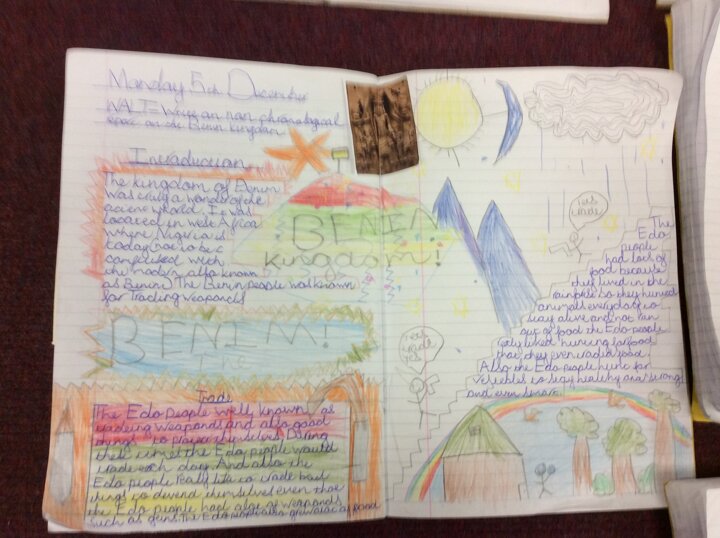 Monday 5th December
WALT= Write an non chronological
report on the Benin kingdom
Introduction
The kingdom of Benin
was truly a wonder of the
acient world. It was
located in west Africa
where Nigeria is
today not to be
confused with
the modern also known
as Benin. The Benin people was known
for Trading weaponds
BENIN
kingdom!
BENIM!
Trade
The Edo people well known as
tradeing weaponds and also good
things to protect themselves. During
their times the Edo people would
trade each day. And also the
Edo people really like to trade bad
things to defend themselves even tho
the Edo people had alot of weaponds
such as guns. The Edo people also
Lets
trade
Lets
trade
yes
The
Edo
people
had lots of
food because
they lived in the
rainforest so they hunted
animals everyday to
stay alive and not run
out of food the Edo people
really liked hunting for food
that they even traded food.
Also the Edo people hunt for
to stay healthy and strong
and even